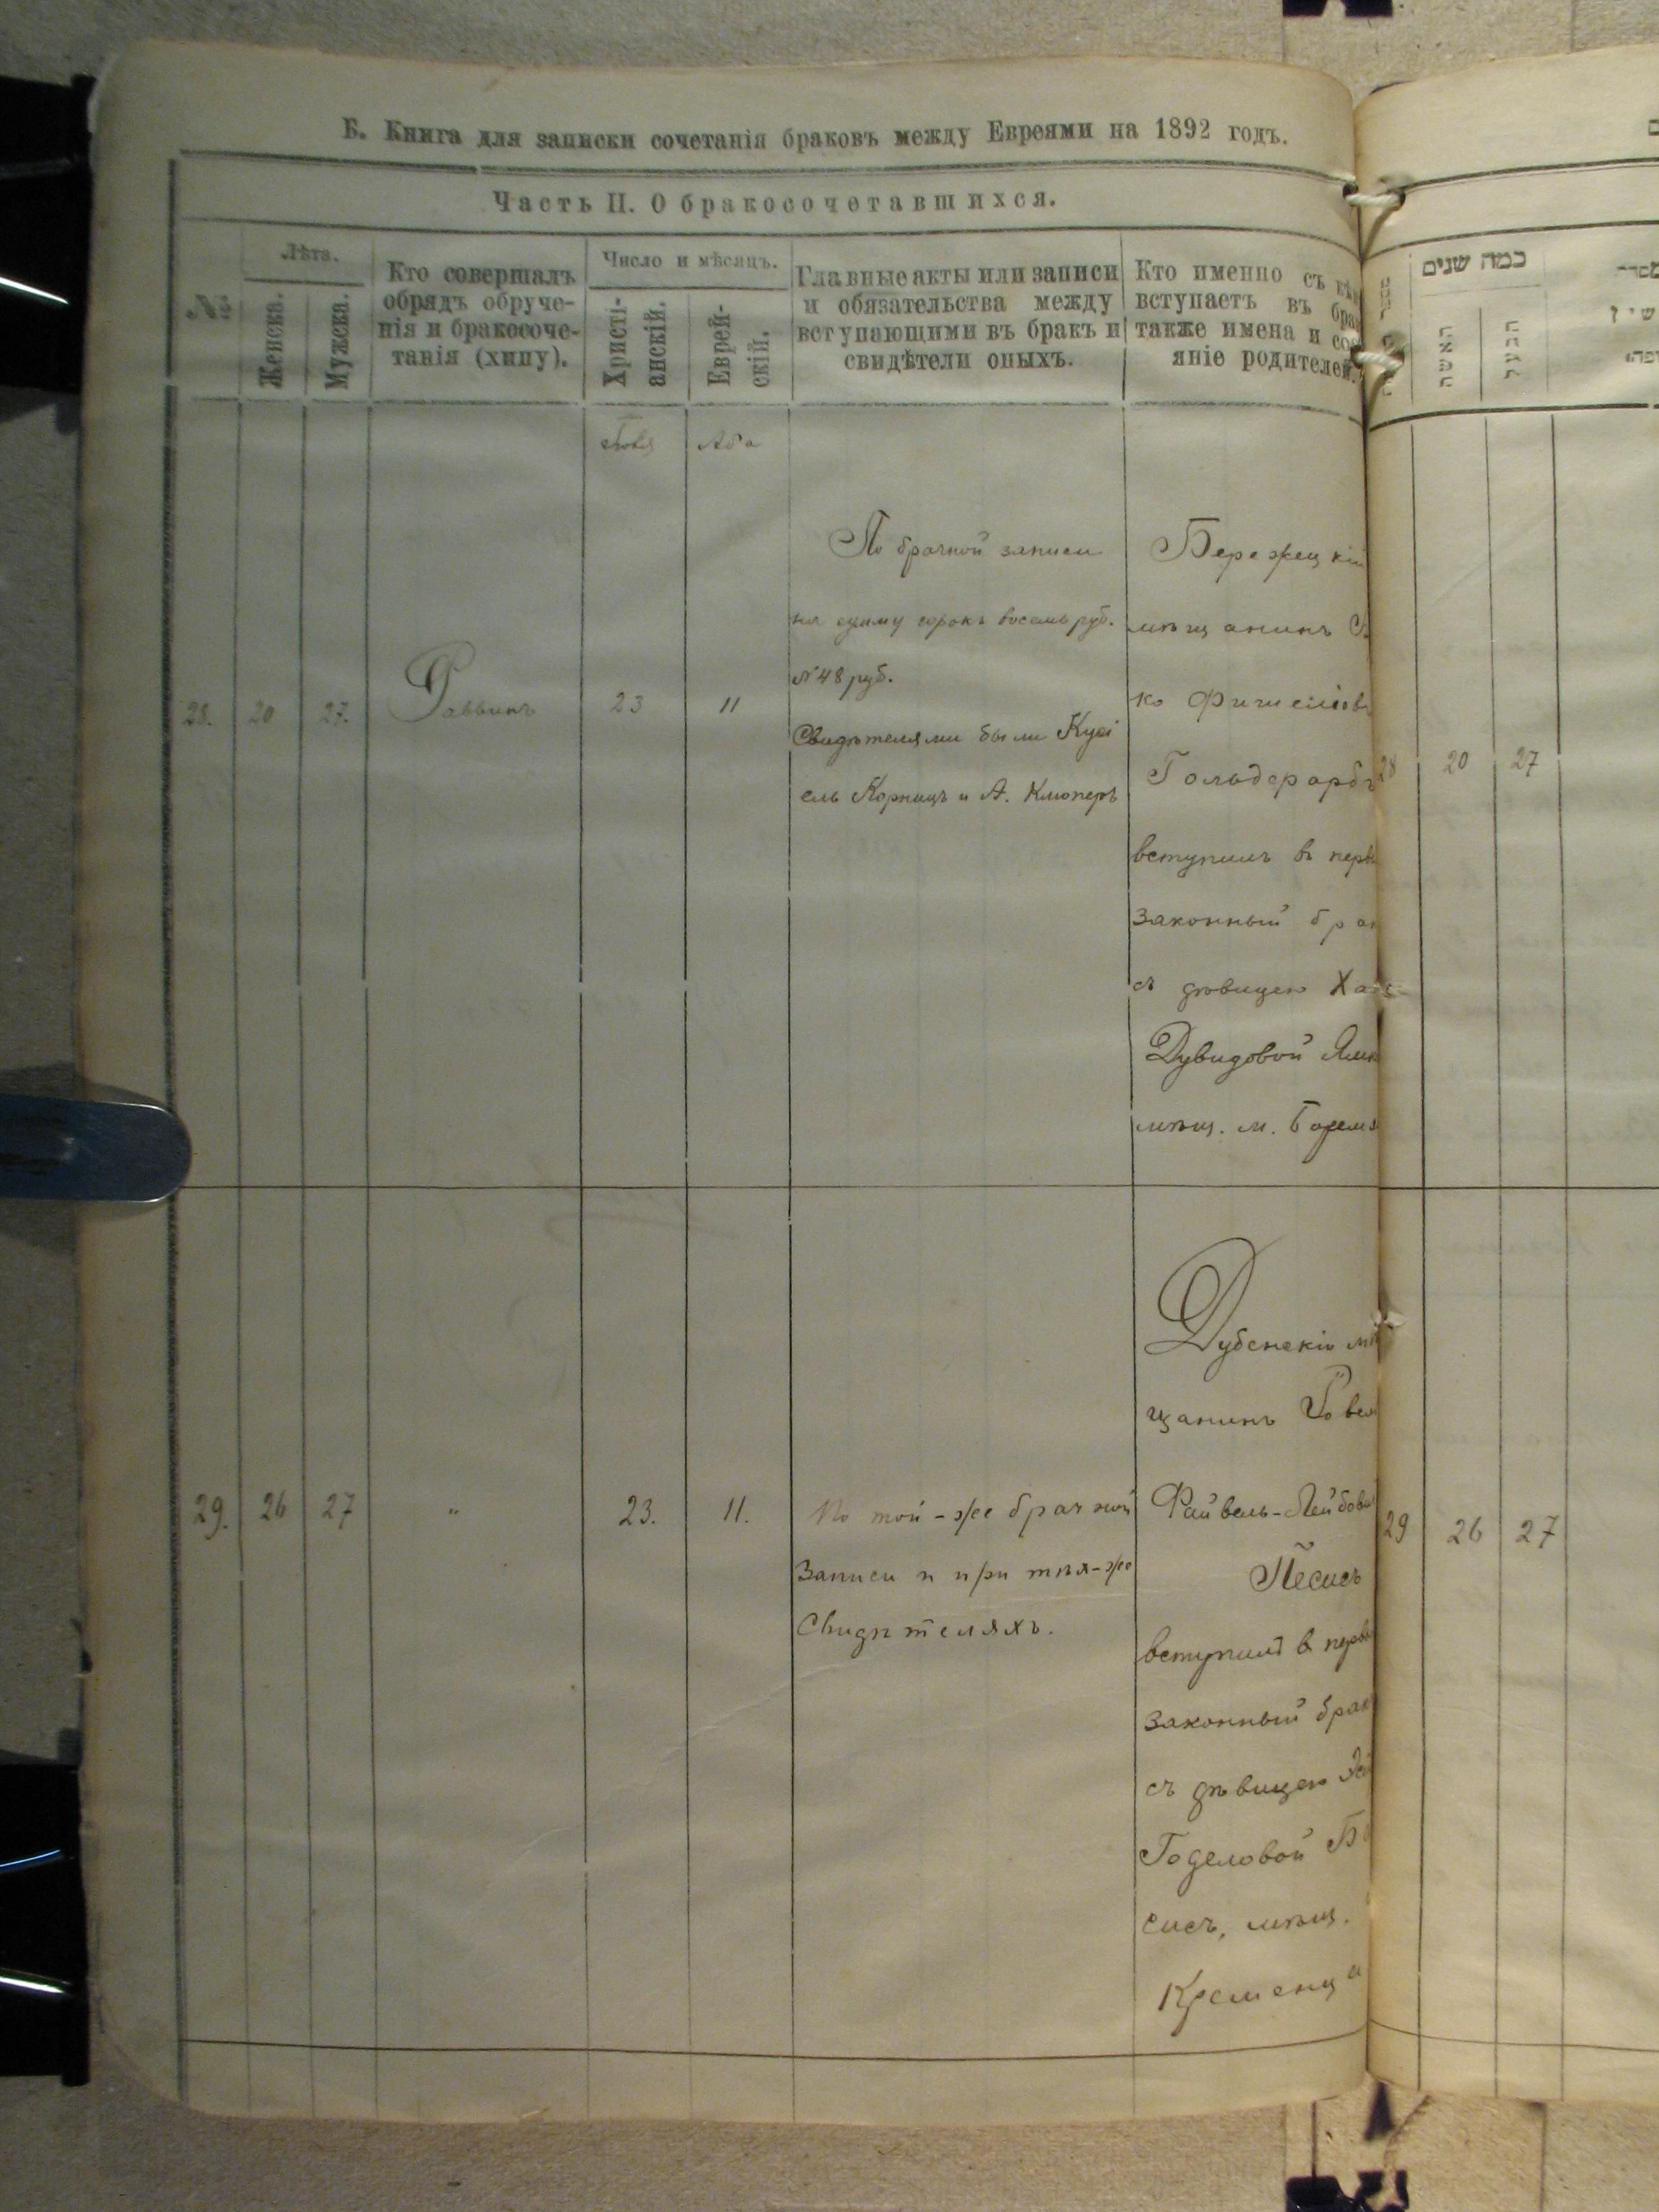 Б. Книга для записки сочетанія браковъ между Евреями на 1892 годъ.
Часть II. О бракосочетавшихся.
№
Лѣта.
Женска.
Мужска.
Кто совершалъ
обрядъ обруче-
нія и бракосоче-
танія (хипу).
Число и мѣсяцъ.
Христі-
анскій.
Еврей-
скій.
Главные акты или записи
и обязательства между
вступающими въ бракъ и
свидѣтели оныхъ.
Кто именно съ
вступаетъ въ
также имена и
яніе родителей.
כמה שנים
האשה
הבעל
Ава
28. 20 27. Раввинъ 23 11
По брачной записи
на сумму сорокъ восемь руб.
№ 48 руб.
Свидѣтелями были Куси
ель Корницъ и А. Клюперъ
Бережецкій
мѣщанинъ
ко
Гольдфарбъ
вступилъ въ
законный
съ дѣвицею
Дувидовой
мѣщ. м.
28 20 27
29. 26 27 " 23. 11.
По той-же брачной
записи и при тѣхъ-же
свидѣтеляхъ.
Дубенскій мѣ
щанинъ
Файвель-
Песисъ
вступилъ въ
законный бракъ
съ дѣвицею
Годеловой
сисъ, мѣщ.
Кременца
29 26 27